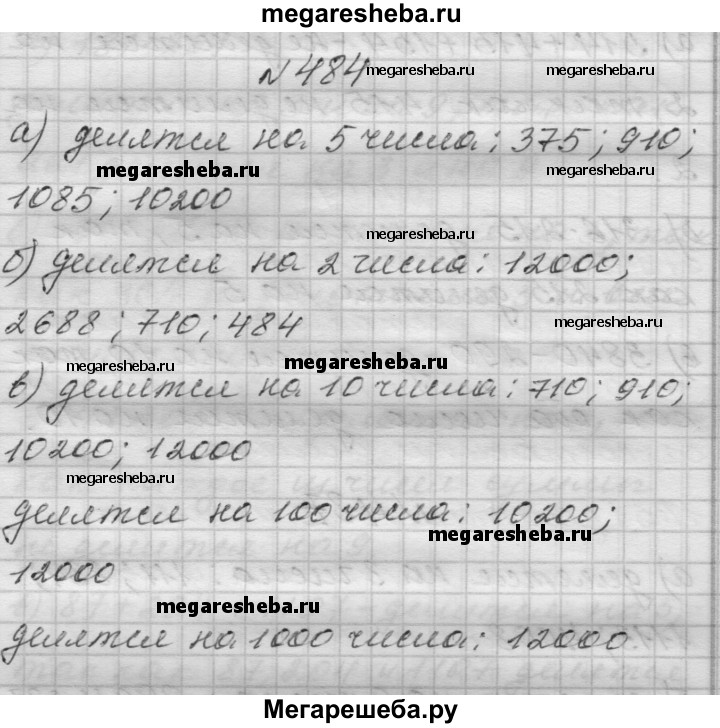 megaresheba.ru
№ 484 megaresheba.ru megaresheba.ru
а) делятся на 5 числа: 375; 910;
megaresheba.ru megaresheba.ru
1085; 10200
megaresheba.ru
б) делятся на 2 числа: 12000;
2688; 710; 484 megaresheba.ru
megaresheba.ru megaresheba.ru
в) делятся на 10 числа: 710; 910;
10200; 12000
megaresheba.ru
делятся на 100 числа: 10200;
megaresheba.ru
12000
megaresheba.ru
делятся на 1000 числа: 12000.
Мегарешеба.ру